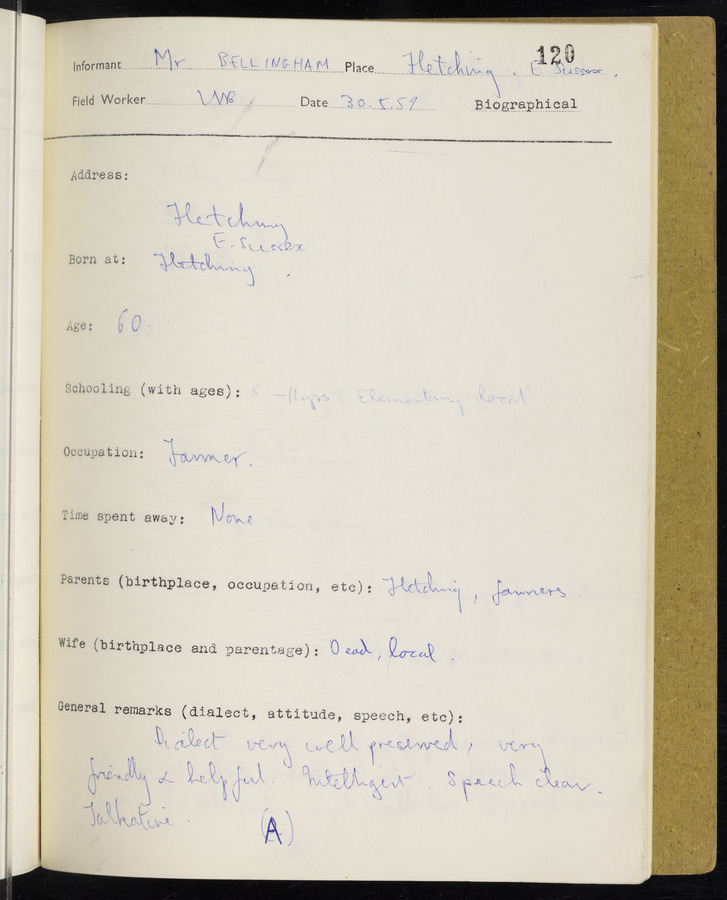 120
Informant Mr BELLINGHAM Place Fletching, E. Sussex.
Field Worker Date 30.5.59 Biographical
Address:
Fletching
E. Sussex
Born at: Fletching.
Age: 60.
Schooling (with ages): 5 -11yrs Elementary local
Occupation: Farmer.
Time spent away: None
Parents (birthplace, occupation, etc): Fletching, farmers.
Wife (birthplace and parentage): Dead, local.
General remarks (dialect, attitude, speech, etc):
Dialect very well preserved, very
friendly & helpful. Intelligent. Speech clear.
Talkative.
(A)